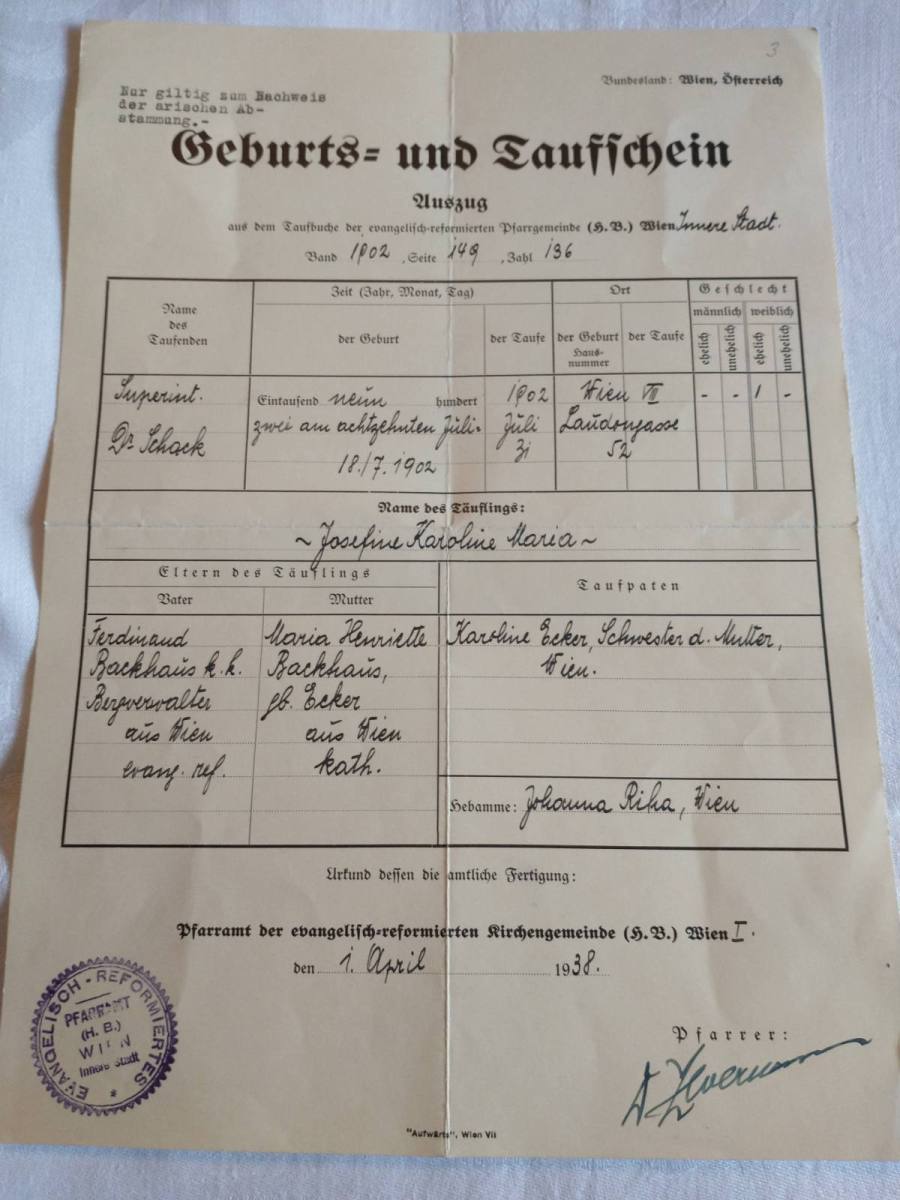 3
Bundesland: Wien, Österreich
Nur giltig zum Nachweis
der arischen Ab-
stammung.-
Geburts- und Taufschein
Auszug
aus dem Taufbuche der evangelisch-reformierten Pfarrgemeinde (H. B.) Wien Innere Stadt.
Band 1902, Seite 149, Zahl 136
Name des Taufenden
Zeit (Jahr, Monat, Tag)
der Geburt
der Taufe
Ort
der Geburt
Haus-
nummer
der Taufe
Geschlecht
männlich weiblich
ehelich unehelich ehelich unehelich
Superint.
Dr Schack
Eintausend neun hundert
zwei am achtzehnten Juli.
18./7.1902
1902
Juli
31
Wien VIII
Laudongasse
52
- - 1 -
Name des Täuflings:
~ Josefine Karoline Maria ~
Eltern des Täuflings
Vater
Mutter
Taufpaten
Ferdinand
Backhaus k.k.
Bergverwalter
aus Wien
evang. ref.
Maria Henriette
Backhaus,
gb. Ecker
aus Wien
kath.
Karoline Ecker, Schwester d. Mutter,
Wien.
Hebamme: Johanna Riha, Wien
Urkund dessen die amtliche Fertigung:
Pfarramt der evangelisch-reformierten Kirchengemeinde (H. B.) Wien I.
den 1. April 1938.
EVANGELISCH-REFORMIERTES
PFARRAMT
(H. B.)
WIEN
Innere Stadt
Pfarrer:
"Aufwärts", Wien VII